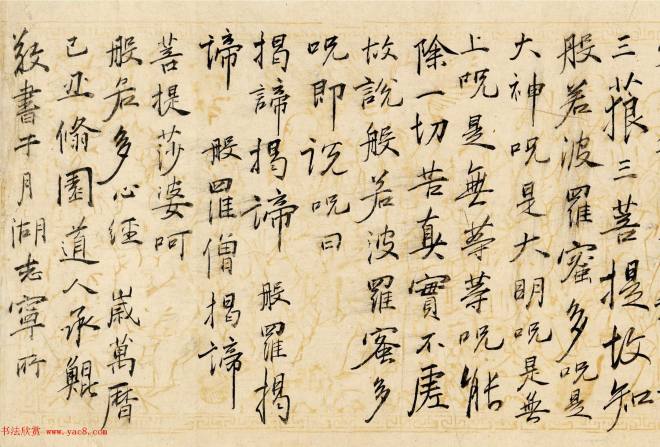 三藐三菩提故知
般若波羅蜜多呪是
大神呪是大明呪是無
上呪是無等等呪能
除一切苦真實不虛
故說般若波羅蜜多
呪即說呪曰
揭諦揭諦 般羅揭
諦 般羅僧揭諦
菩提莎婆呵
般若多心經 歲萬曆
己丑脩園道人承鯤
敬書于月湖志寧所
书法欣赏 www.yac8.com